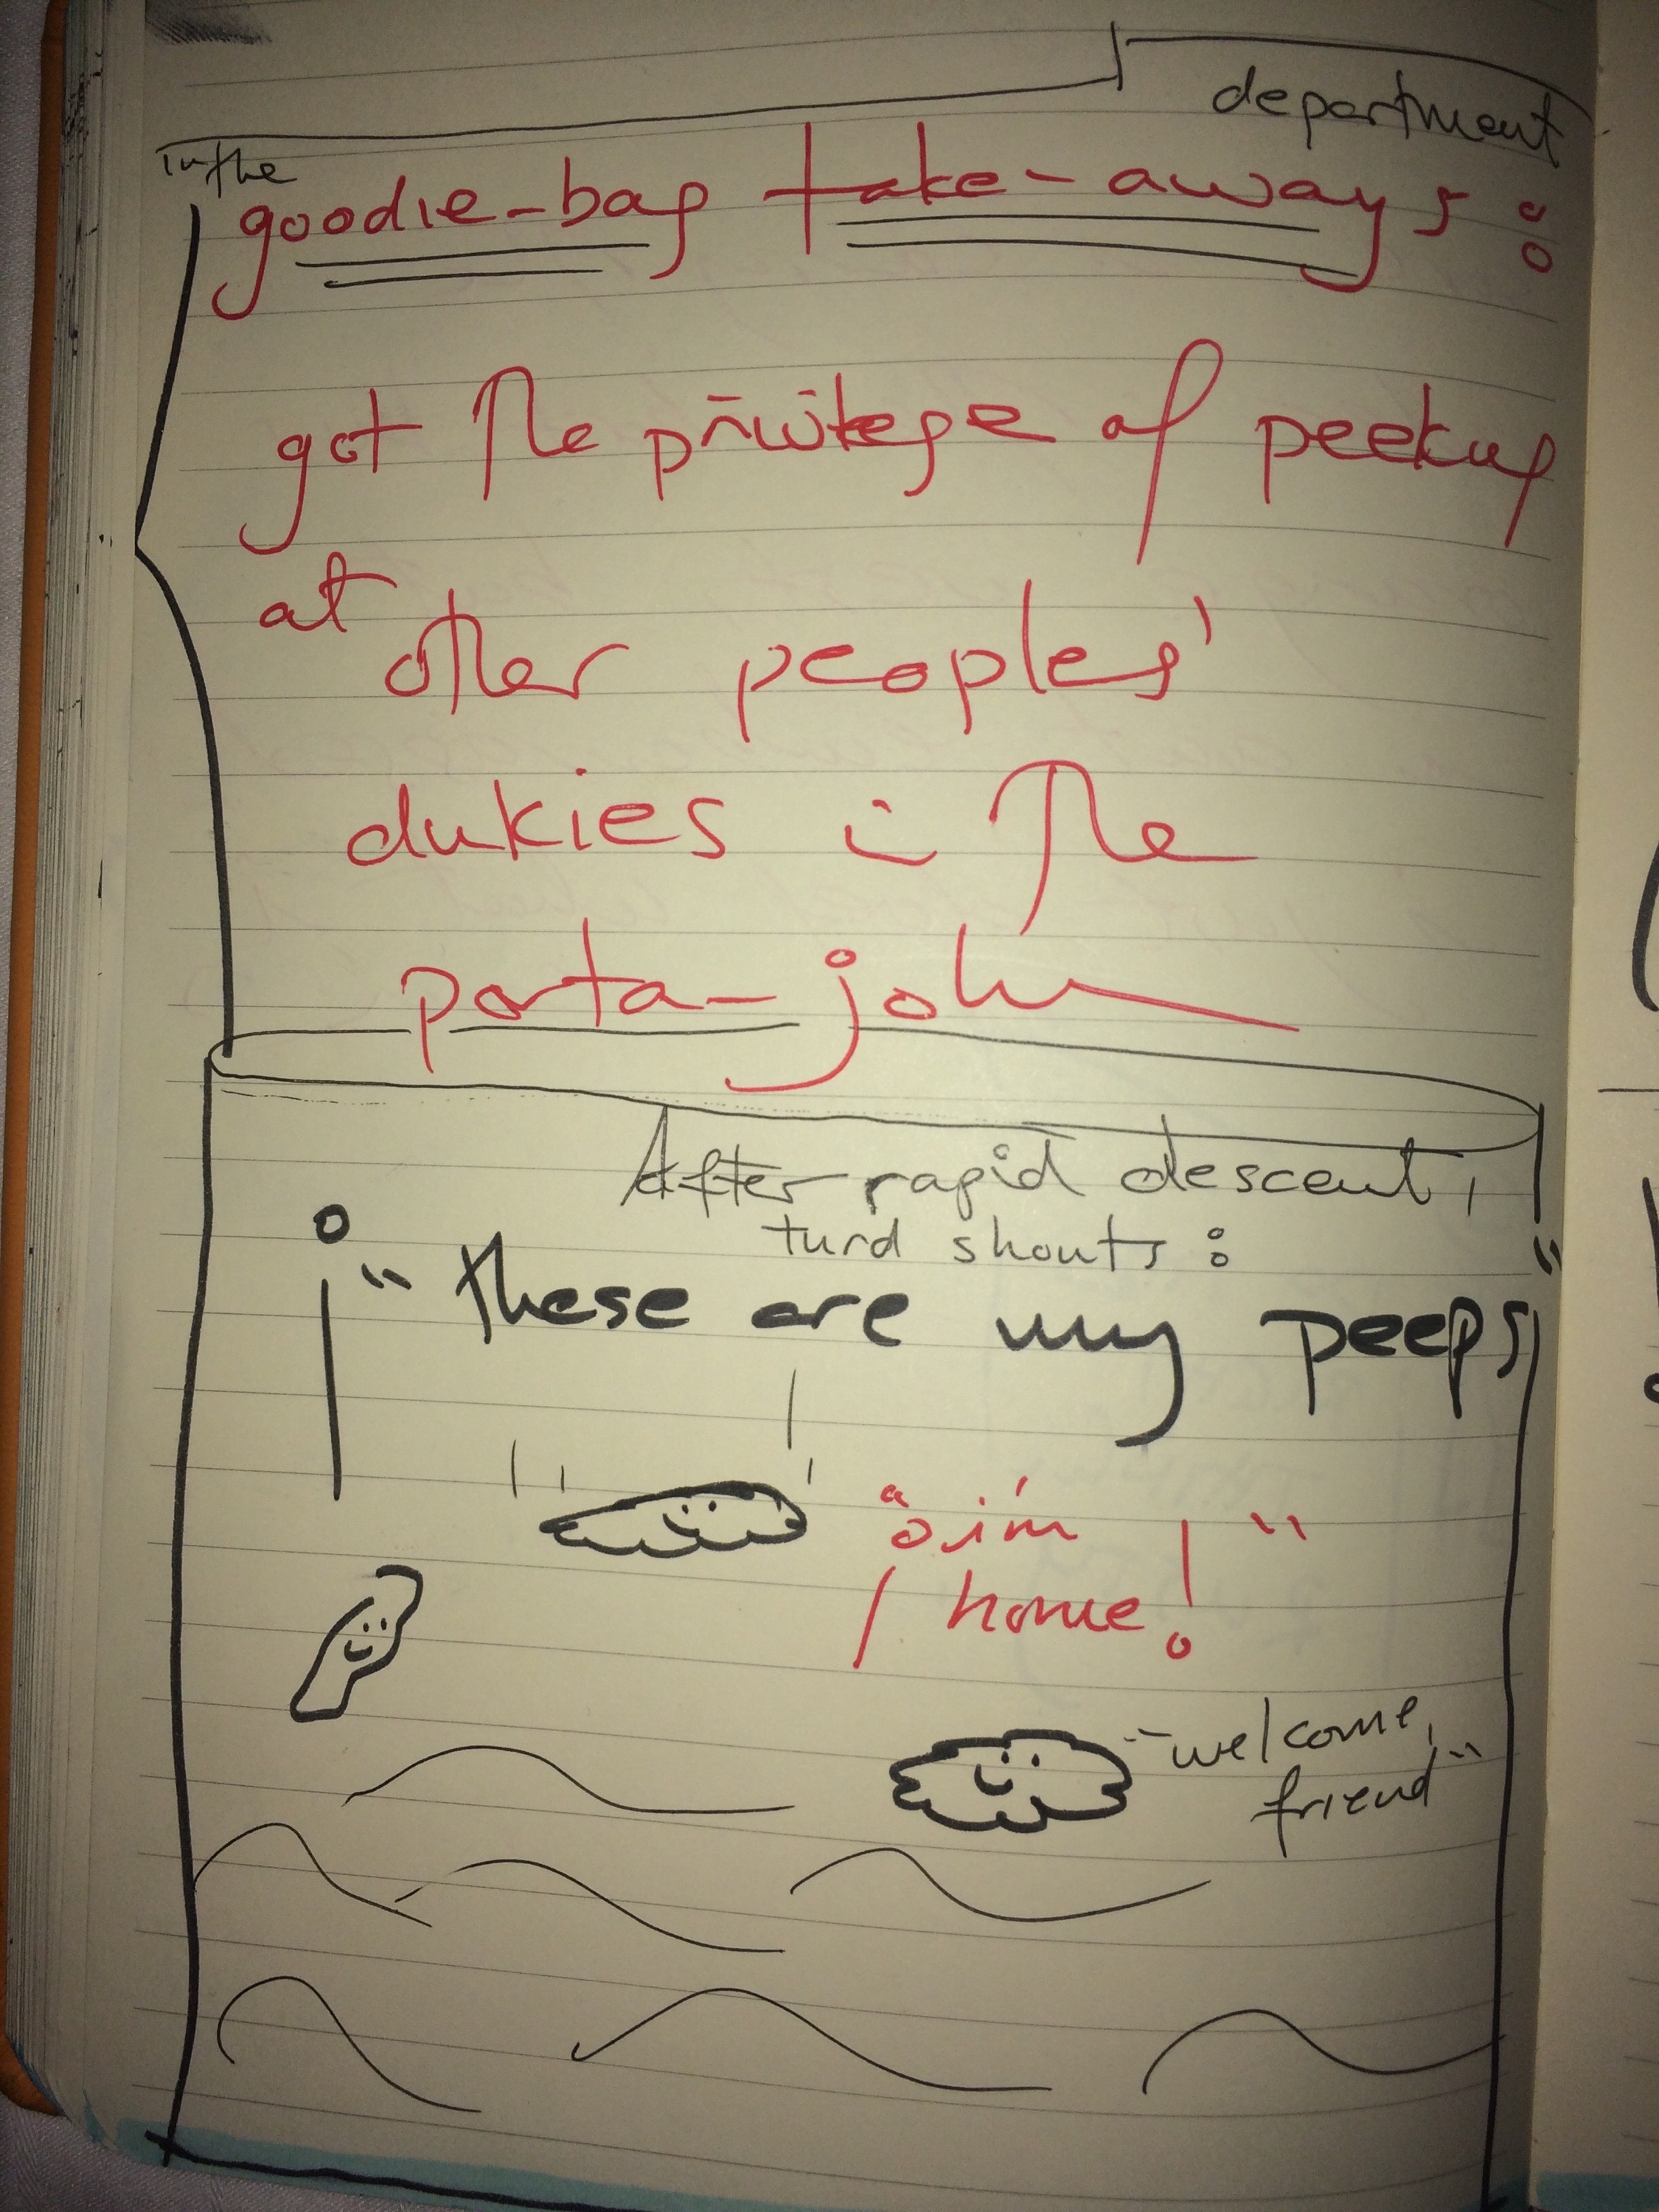 in the
department
goodie-bag take-aways:
got the privilege of peeking
at other peoples'
dukies in the
porta-john
After rapid descent,
turd shouts:
¡"these are my peeps"
"¡i'm
home!"
"welcome,
friend"